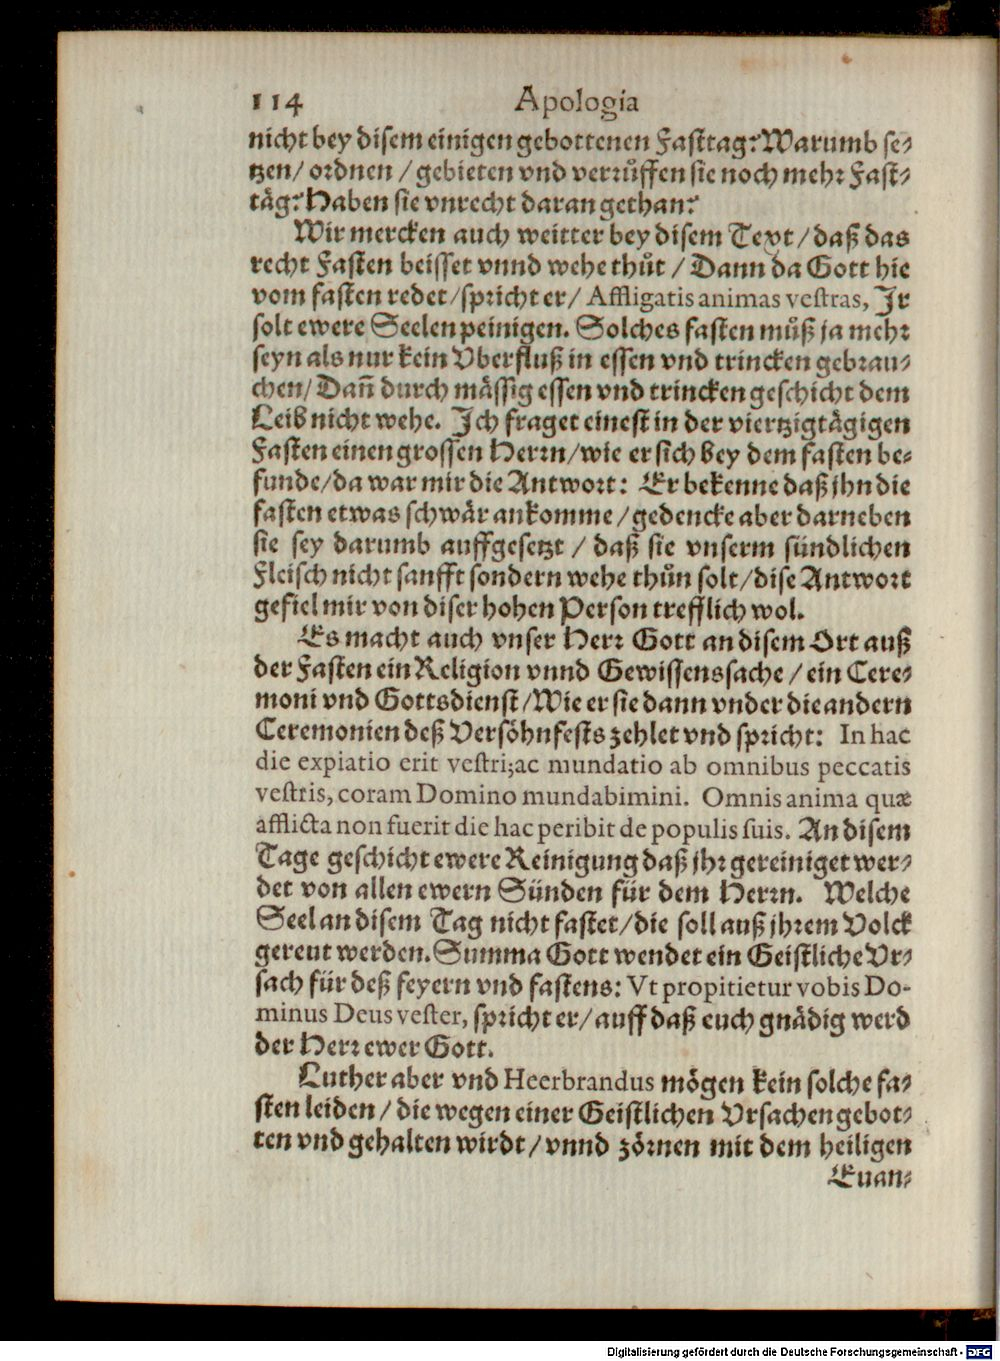 114 Apologia
nicht bey disem einigen gebottenen Fasttag? Warumb se-
tzen/ ordnen / gebieten vnd verrůffen sie noch mehr Fast-
täg? Haben sie vnrecht daran gethan?
Wir mercken auch weitter bey disem Text / daß das
recht Fasten beisset vnnd wehe thůt / Dann da Gott hie
vom fasten redet/spricht er/ Affligatis animas vestras, Jr
solt ewere Seelen peinigen. Solches fasten můß ja mehr
seyn als nur kein Vberfluß in essen vnd trincken gebrau-
chen/ Dañ durch mässig essen vnd trincken geschicht dem
Leib nicht wehe. Jch fraget einest in der viertzigtägigen
Fasten einen grossen Herrn/wie er sich bey dem fasten be-
funde/da war mir die Antwort: Er bekenne daß jhn die
fasten etwas schwär ankomme / gedencke aber darneben
sie sey darumb auffgesetzt / daß sie vnserm sündlichen
Fleisch nicht sanfft sondern wehe thůn solt/dise Antwort
gefiel mir von diser hohen Person trefflich wol.
Es macht auch vnser Herr Gott an disem Ort auß
der Fasten ein Religion vnnd Gewissenssache / ein Cere-
moni vnd Gottsdienst/Wie er sie dann vnder die andern
Ceremonien deß Versöhnfests zehlet vnd spricht: In hac
die expiatio erit vestri; ac mundatio ab omnibus peccatis
vestris, coram Domino mundabimini. Omnis anima quæ
afflicta non fuerit die hac peribit de populis suis. An disem
Tage geschicht ewere Reinigung daß jhr gereiniget wer-
det von allen ewern Sünden für dem Herrn. Welche
Seel an disem Tag nicht fastet/die soll auß jhrem Volck
gereut werden. Summa Gott wendet ein Geistliche Vr-
sach für deß feyern vnd fastens: Vt propitietur vobis Do-
minus Deus vester, spricht er/ auff daß euch gnädig werd
der Herr ewer Gott.
Luther aber vnd Heerbrandus mögen kein solche fa-
sten leiden / die wegen einer Geistlichen Vrsachen gebot-
ten vnd gehalten wirdt / vnnd zörnen mit dem heiligen
Euan-
Digitalisierung gefördert durch die Deutsche Forschungsgemeinschaft - DFG